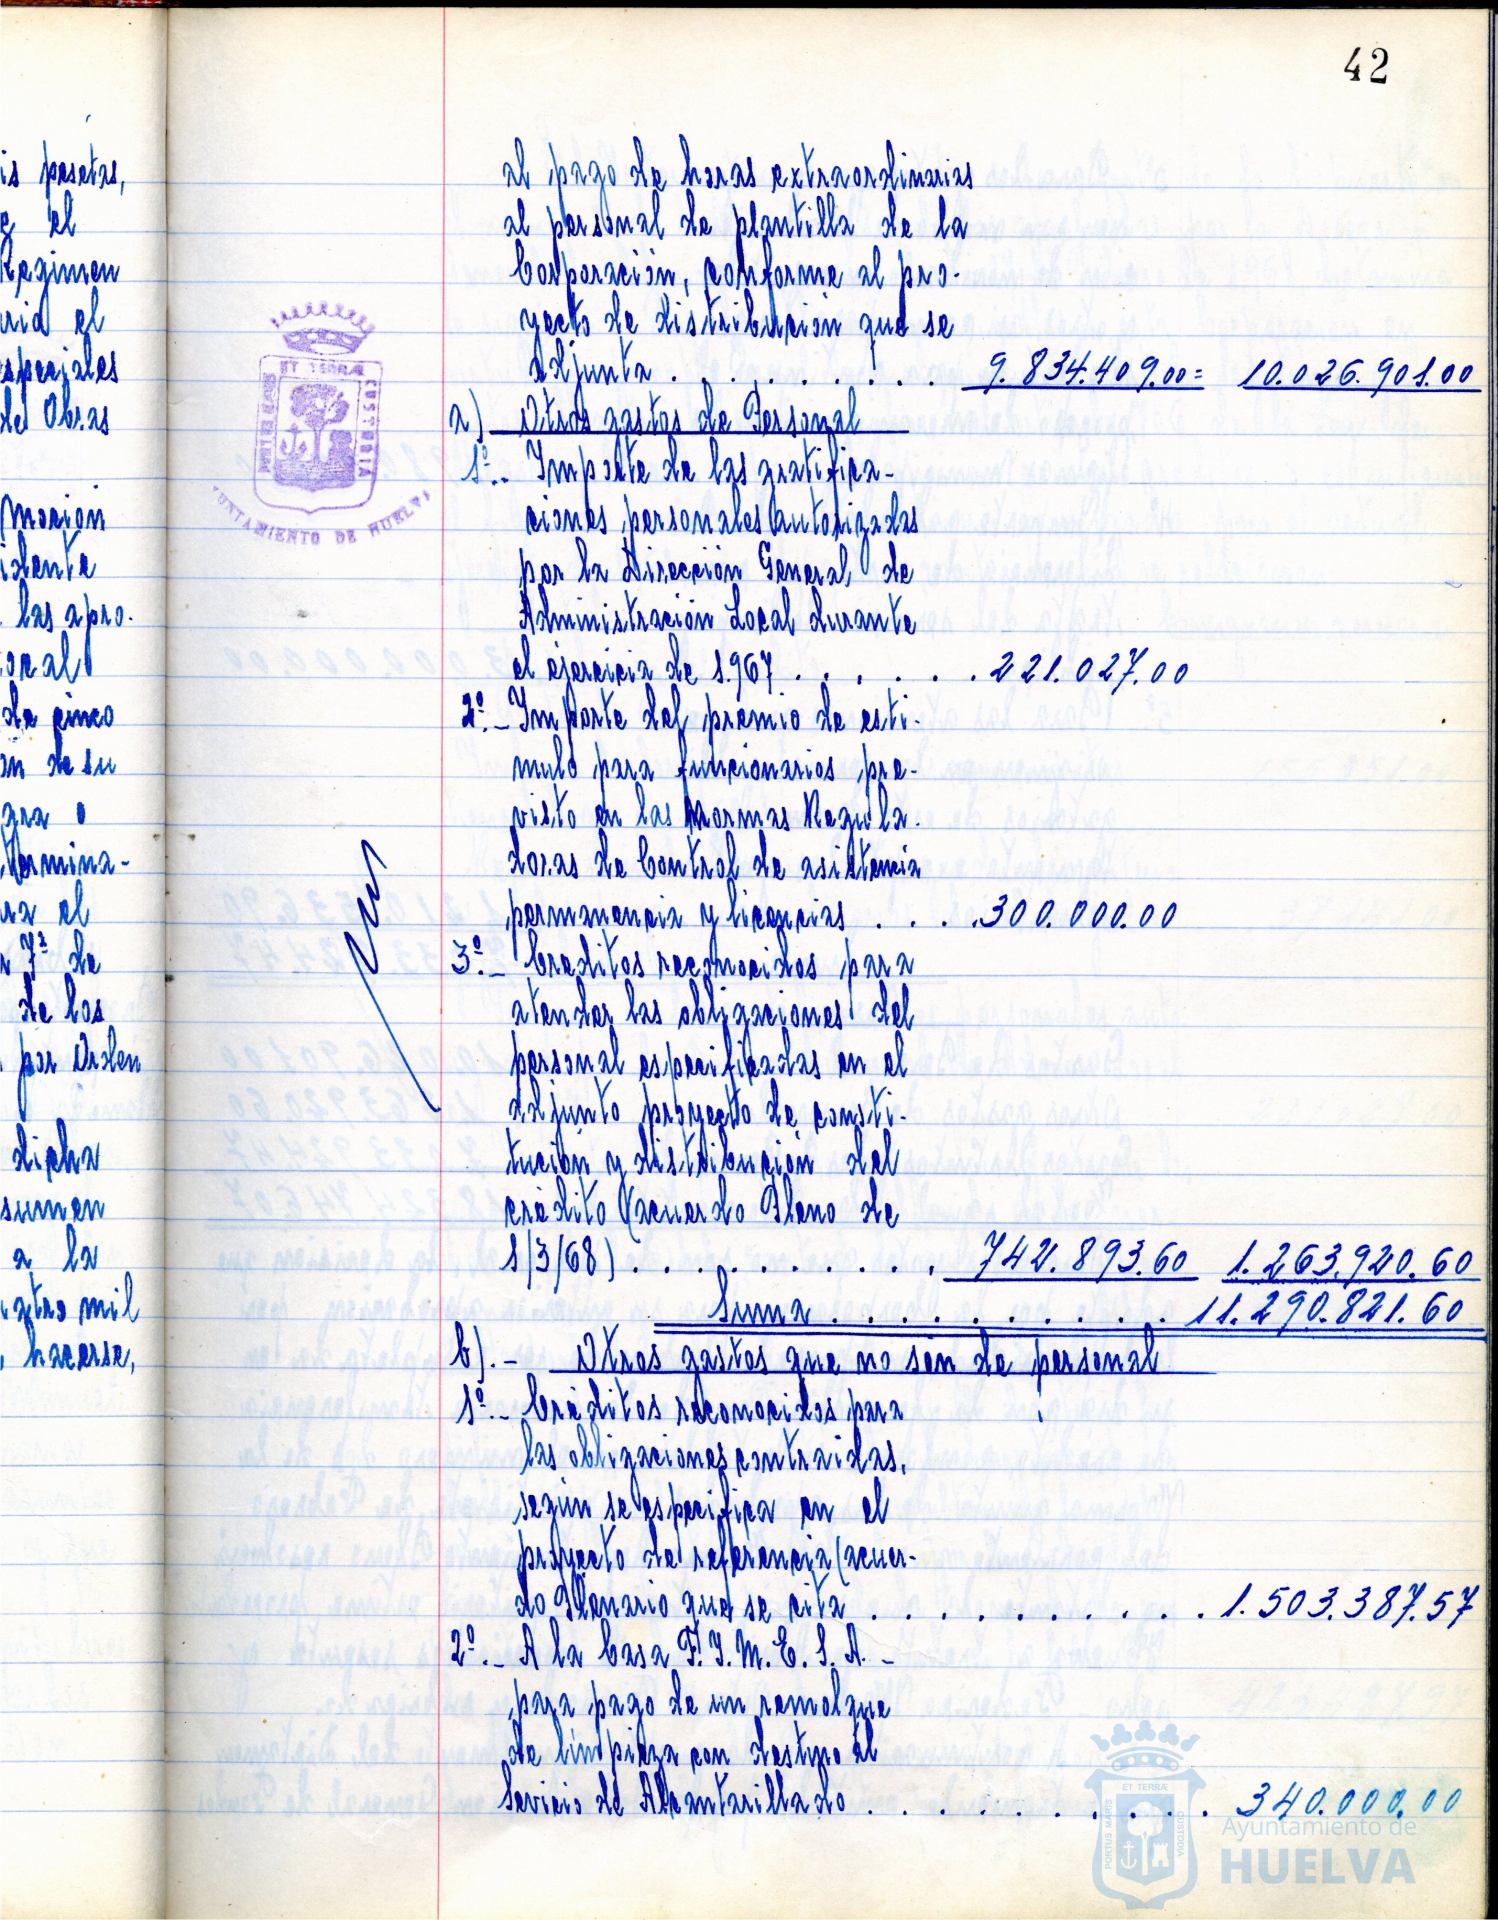 42
is pesetas,
g el
Regimen
ria el
speciales
de Obras
moción
idente
las apro-
oral
de cinco
ón de su
gra o
termina-
ra el
7ª de
de los
por Orden
dicha
sumen
a la
uatro mil
, hacerse,
al pago de horas extraordinarias
al personal de plantilla de la
Corporación, conforme al pro-
yecto de distribución que se
adjunta . . . . . . . . . 9.834.409.00= 10.026.901.00
a) Otros gastos de Personal
1º.- Importe de las gratifica-
ciones personales autorizadas
por la Dirección General de
Administración Local durante
el ejercicio de 1.967 . . . . . . 221.027.00
2º.- Importe del premio de estí-
mulo para funcionarios pre-
visto en las Normas Regula-
doras de Control de asistencia
permanencia y licencias . . . . 300.000.00
3º.- Créditos reconocidos para
atender las obligaciones del
personal especificadas en el
adjunto proyecto de consti-
tución y distribución del
crédito (acuerdo Pleno de
1/3/68) . . . . . . . . . . 742.893.60 1.263.920.60
Suma . . . . . . . . . . 11.290.821.60
b).- Otros gastos que no son de personal
1º.- Créditos reconocidos para
las obligaciones contraidas,
según se especifica en el
proyecto de referencia (acuer-
do Plenario que se cita . . . . . . . . . . . 1.503.387.57
2º.- A la Casa F.I.M.E.S.A. -
para pago de un remolque
de limpieza con destino al
Sevicio de Alcantarillado . . . . . . . . . . . 340.000.00
PORTUS MARIS ET TERRAE CUSTODIA
AYUNTAMIENTO DE HUELVA
PORTUS MARIS ET TERRÆ CUSTODIA
Ayuntamiento de
HUELVA